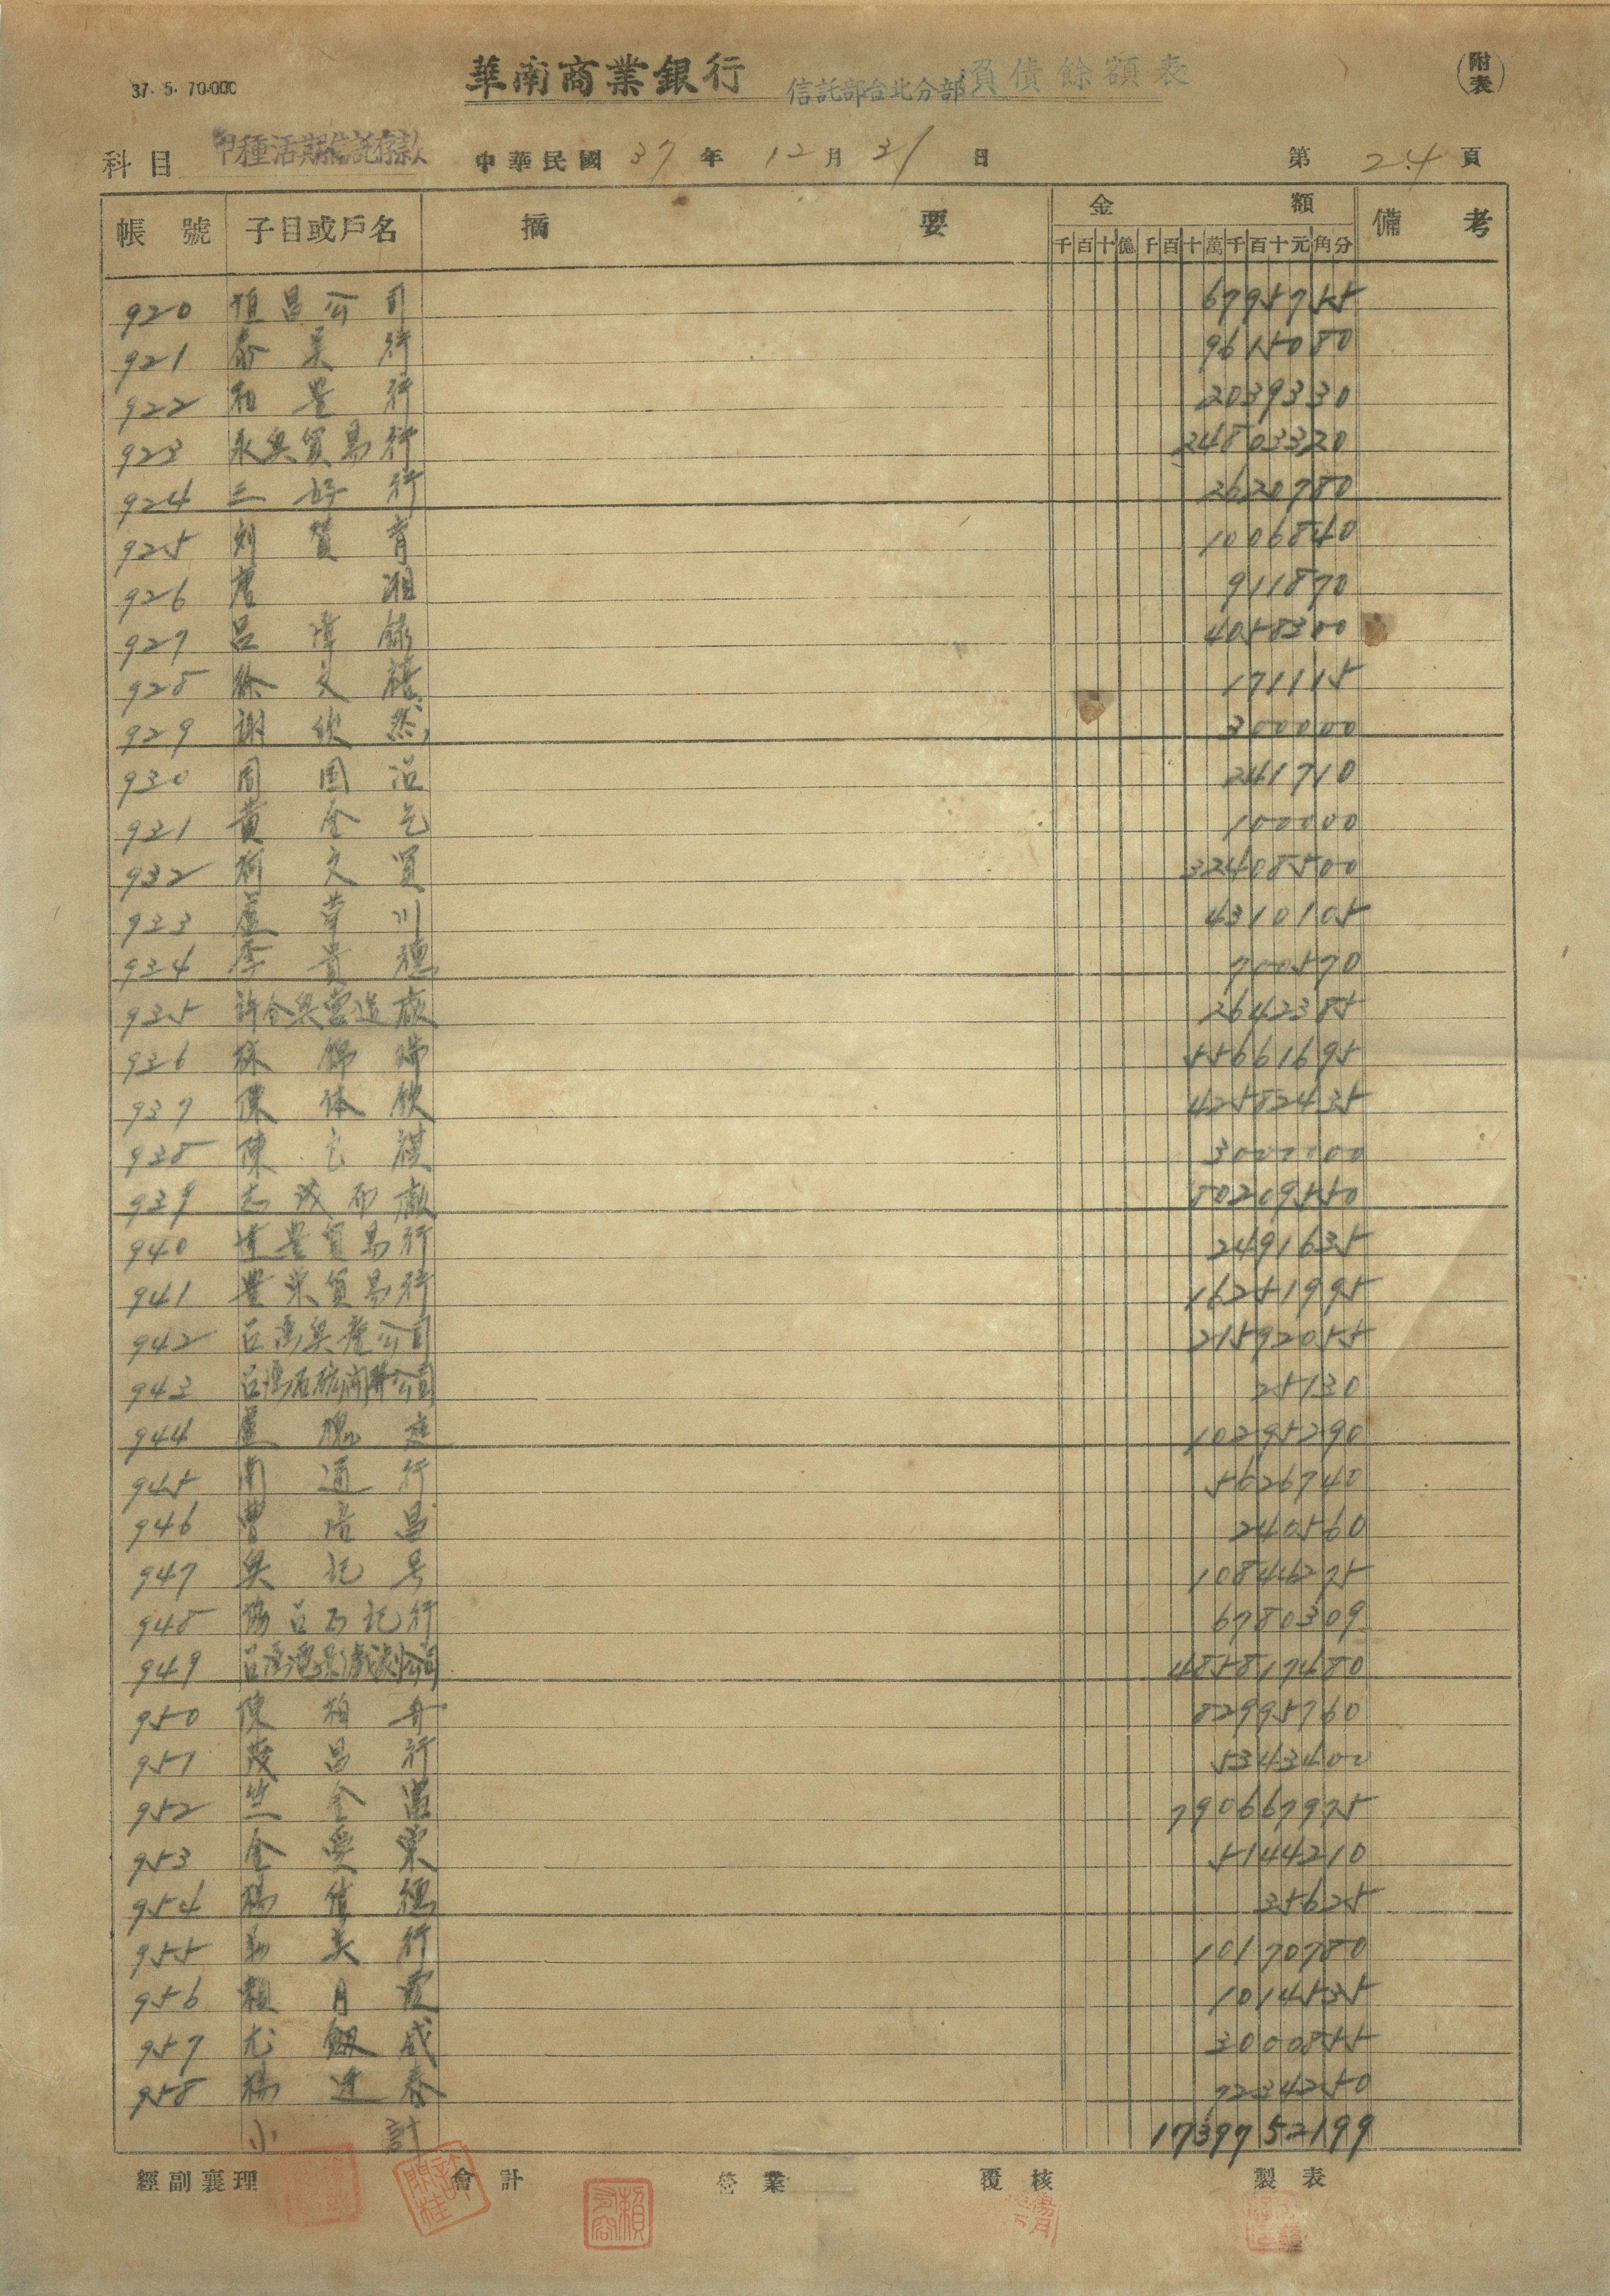 37. 5. 70.000
華南商業銀行 信託部台北分部 負債餘額表 (附表)
科目 甲種活期信託存款 中華民國 37 年 12 月 31 日 第 24 頁
帳號 子目或戶名 摘要 金額 備考
千百十億千百十萬千百十元角分
920 恒昌公司 6795755
921 泰昊行 9615080
922 和豊行 2039330
923 永興貿易行 34803320
924 三好行 2620780
925 刘賛育 1006840
926 唐湘 911870
927 呂漳錦 4058300
928 徐文禧 171115
929 謝欽然 300000
930 周国治 261710
931 黃金乞 100000
932 柯文買 32408500
933 盧草川 4310105
934 李貴穗 700570
935 許合興營造廠 2642385
936 林錦瑞 55661695
937 陳体欽 42582435
938 陳祺 3000000
939 志誠布廠 80209550
940 達豊貿易行 2491635
941 豊榮貿易行 16251995
942 台湾興產公司 21592055
943 公司 25130
944 盧瑰 10295290
945 南通行 5626740
946 曹培昌 240560
947 吳記号 10846275
948 協台西記行 6780309
949 台湾電影戲劇公司 485817480
950 陳栢舟 82995760
951 茂昌行 5343400
952 竺金富 790667975
953 金雯棠 5144210
954 楊信德 35625
955 美行 10170780
956 賴月霞 1014535
957 尤劔成 3000855
958 楊逢春 7234250
小計 1739752199
經副襄理 會計 營業 覆核 製表